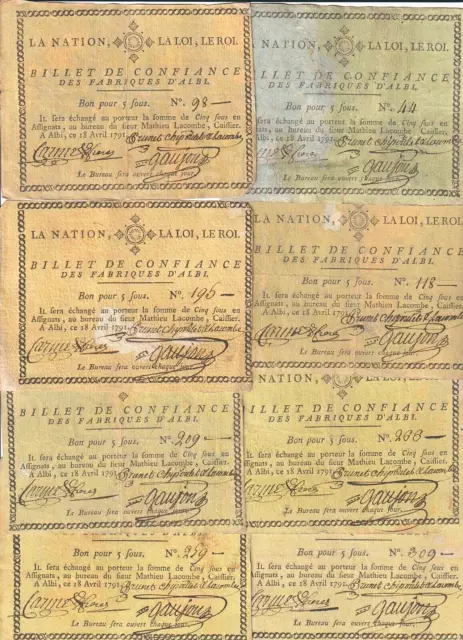 LA NATION, LA LOI, LE ROI.
BILLET DE CONFIANCE
DES FABRIQUES D'ALBI.
Bon pour 5 sous. N°. 98
Il sera échangé au porteur la somme de Cinq sous en
Assignats, au bureau du sieur Mathieu Lacombe, Caissier.
A Albi, ce 18 Avril 1791.
Gaujon
Le Bureau sera ouvert chaque jour.
LA NATION, LA LOI, LE ROI.
BILLET DE CONFIANCE
DES FABRIQUES D'ALBI.
Bon pour 5 sous. N°. 44
Il sera échangé au porteur la somme de Cinq sous en
Assignats, au bureau du sieur Mathieu Lacombe, Caissier.
A Albi, ce 18 Avril 1791.
Gaujon
Le Bureau sera ouvert chaque jour.
LA NATION, LA LOI, LE ROI.
BILLET DE CONFIANCE
DES FABRIQUES D'ALBI.
Bon pour 5 sous. N°. 195
Il sera échangé au porteur la somme de Cinq sous en
Assignats, au bureau du sieur Mathieu Lacombe, Caissier.
A Albi, ce 18 Avril 1791.
Gaujon
Le Bureau sera ouvert chaque jour.
LA NATION, LA LOI, LE ROI.
BILLET DE CONFIANCE
DES FABRIQUES D'ALBI.
Bon pour 5 sous. N°. 118
Il sera échangé au porteur la somme de Cinq sous en
Assignats, au bureau du sieur Mathieu Lacombe, Caissier.
A Albi, ce 18 Avril 1791.
Gaujon
Le Bureau sera ouvert chaque jour.
BILLET DE CONFIANCE
DES FABRIQUES D'ALBI.
Bon pour 5 sous. N°. 209
Il sera échangé au porteur la somme de Cinq sous en
Assignats, au bureau du sieur Mathieu Lacombe, Caissier.
A Albi, ce 18 Avril 1791.
Gaujon
NATION, LA LOI, LE ROI.
BILLET DE CONFIANCE
DES FABRIQUES D'ALBI.
Bon pour 5 sous. N°.
Il sera échangé au porteur la somme de Cinq sous en
Assignats, au bureau du sieur Mathieu Lacombe, Caissier.
A Albi, ce 18 Avril 1791.
Gaujon
Bon pour 5 sous. N°.
Il sera échangé au porteur la somme de Cinq sous en
Assignats, au bureau du sieur Mathieu Lacombe, Caissier.
A Albi, ce 18 Avril 1791.
Gaujon
Le Bureau sera ouvert chaque jour.
Bon pour 5 sous. N°. 309
Il sera échangé au porteur la somme de Cinq sous en
Assignats, au bureau du sieur Mathieu Lacombe, Caissier.
A Albi, ce 18 Avril 1791.
Gaujon
Le Bureau sera ouvert chaque jour.